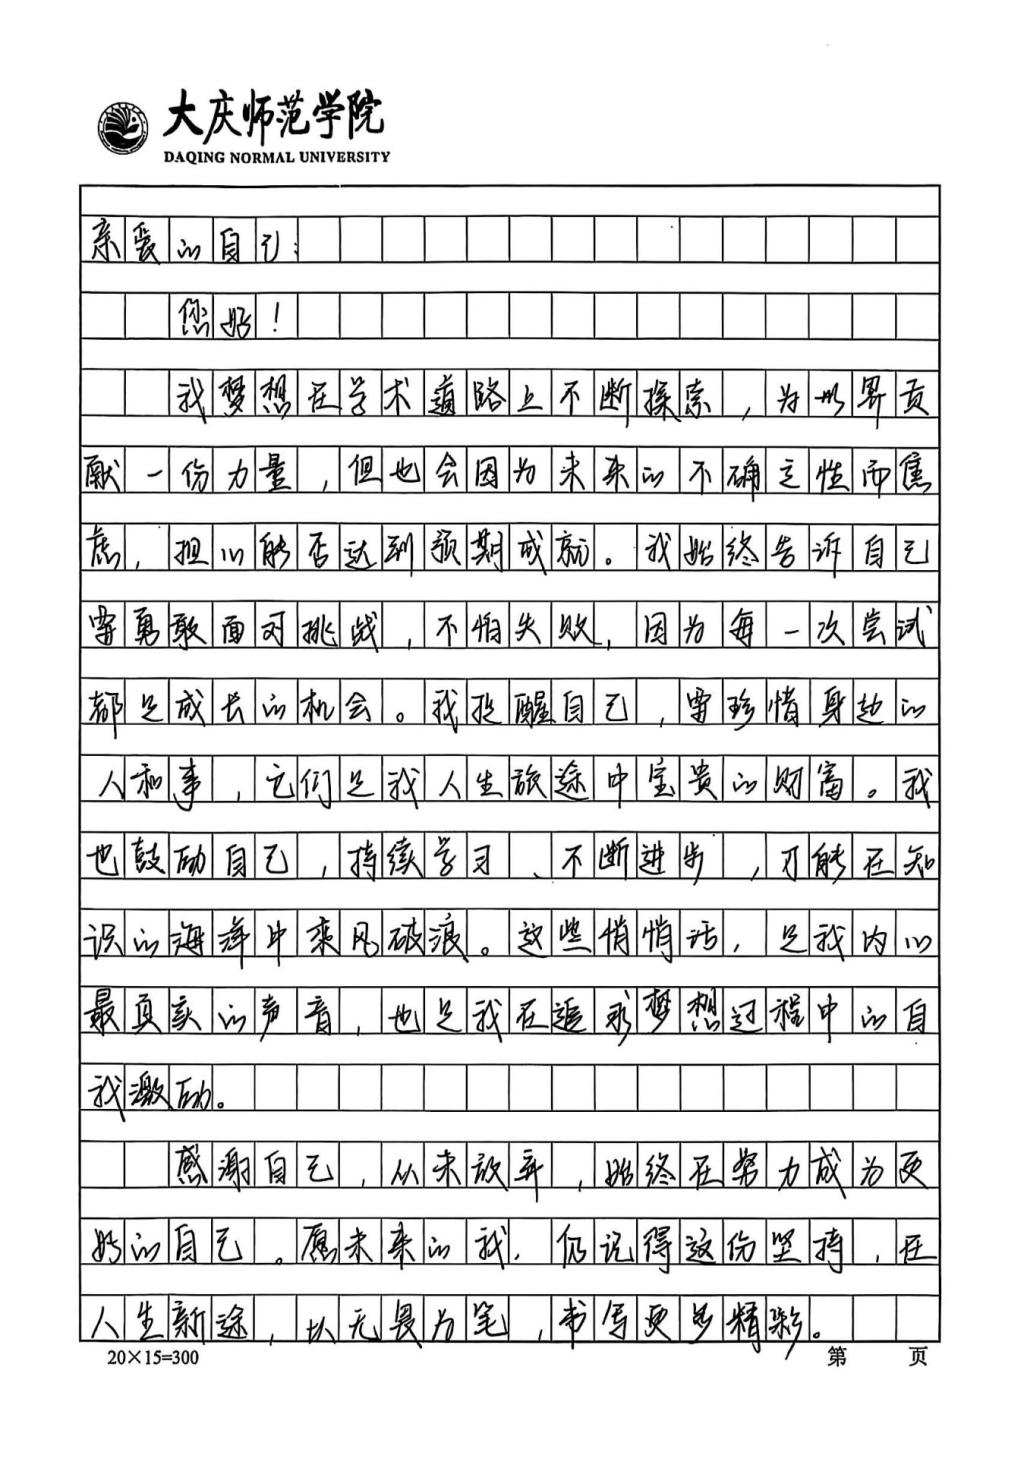 大庆师范学院
DAQING NORMAL UNIVERSITY
亲爱的自己：
您好！
我梦想在学术道路上不断探索，为世界贡
献一份力量，但也会因为未来的不确定性而焦
虑，担心能否达到预期成就。我始终告诉自己
要勇敢面对挑战，不怕失败，因为每一次尝试
都是成长的机会。我提醒自己，要珍惜身边的
人和事，它们是我人生旅途中宝贵的财富。我
也鼓励自己，持续学习、不断进步，才能在知
识的海洋中乘风破浪。这些悄悄话，是我内心
最真实的声音，也是我在追求梦想过程中的自
我激励。
感谢自己，从未放弃，始终在努力成为更
好的自己。愿未来的我，仍记得这份坚持，在
人生新途，以无畏为笔，书写更多精彩。
20×15=300
第 页